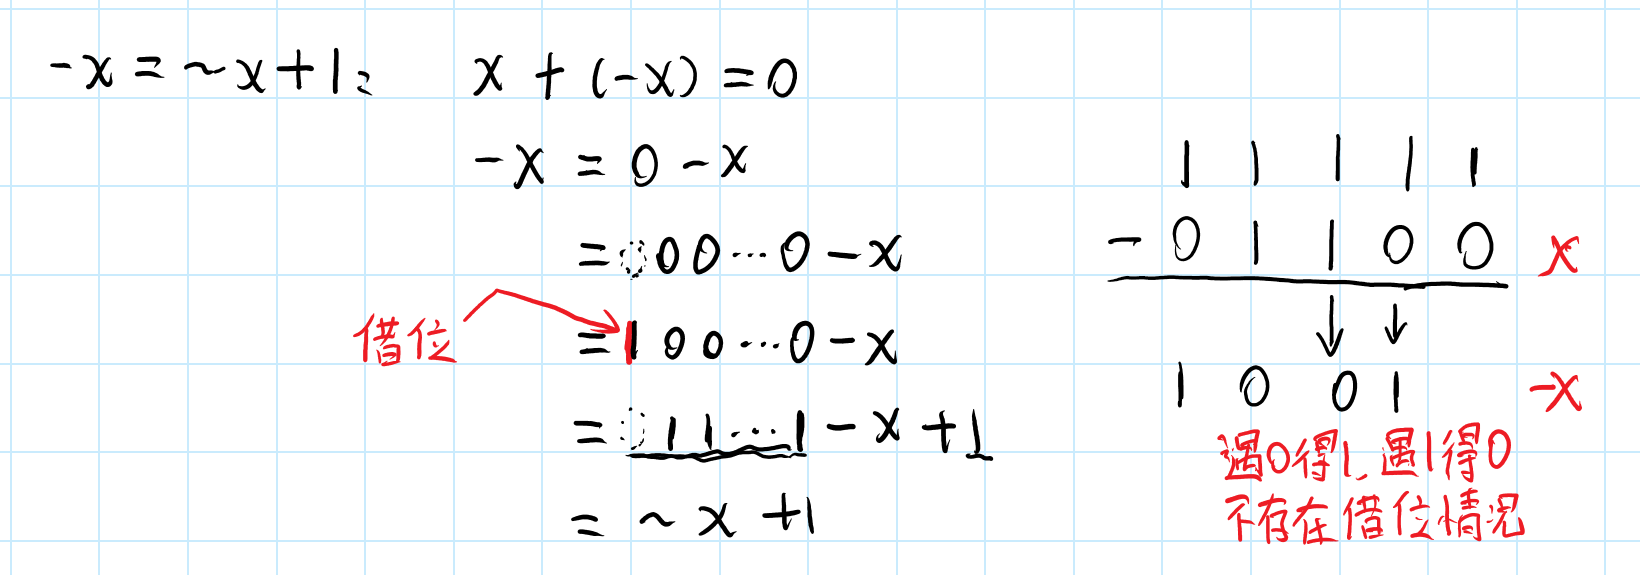 -x = ~x+1:
x + (-x) = 0
-x = 0 - x
= 000...0 - x
借位
= 100...0 - x
= 011...1 - x + 1
= ~x + 1
1 1 1 1 1
- 0 1 1 0 0 x
↓ ↓
1 0 0 1 -x
遇0得1,遇1得0
不存在借位情况